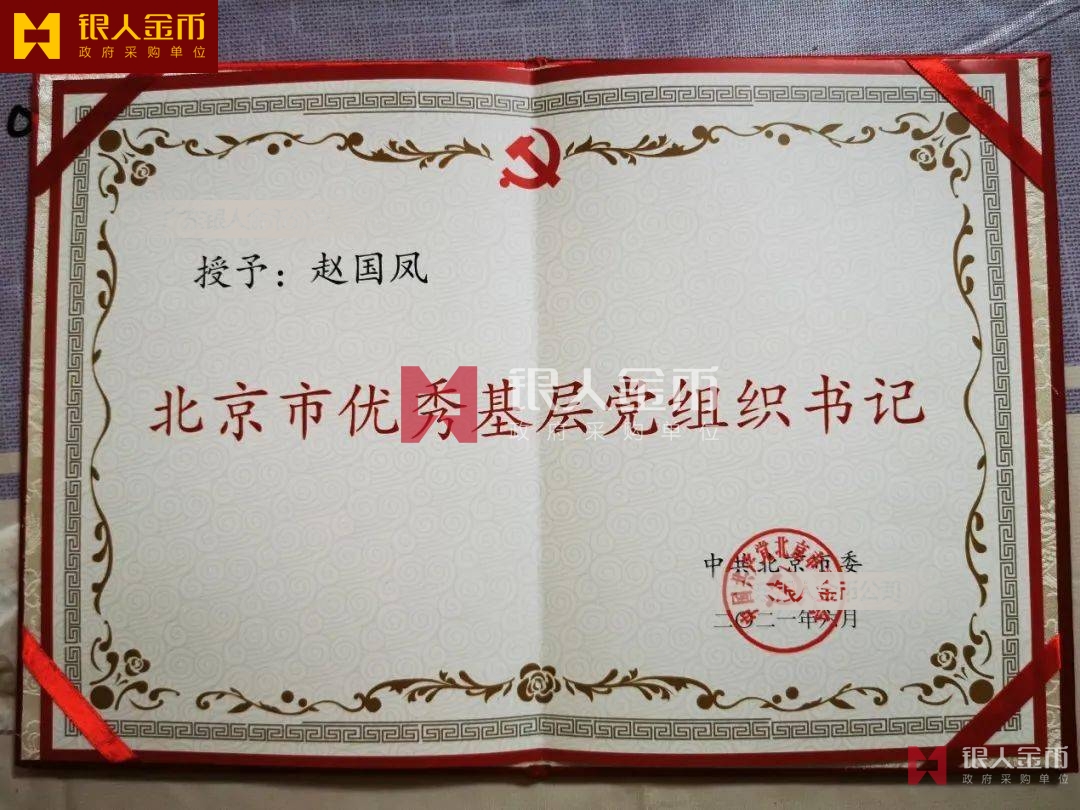 银人金币
政府采购单位
授予：赵国凤
北京市优秀基层党组织书记
银人金币
政府采购单位
中共北京市委
二〇二一年六月
银人金币
政府采购单位